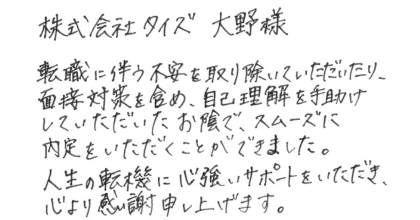 株式会社タイズ 大野様
転職に伴う不安を取り除いていただいたり、
面接対策を含め、自己理解を手助け
していただいたお陰で、スムーズに
内定をいただくことができました。
人生の転機に心強いサポートをいただき、
心より感謝申し上げます。